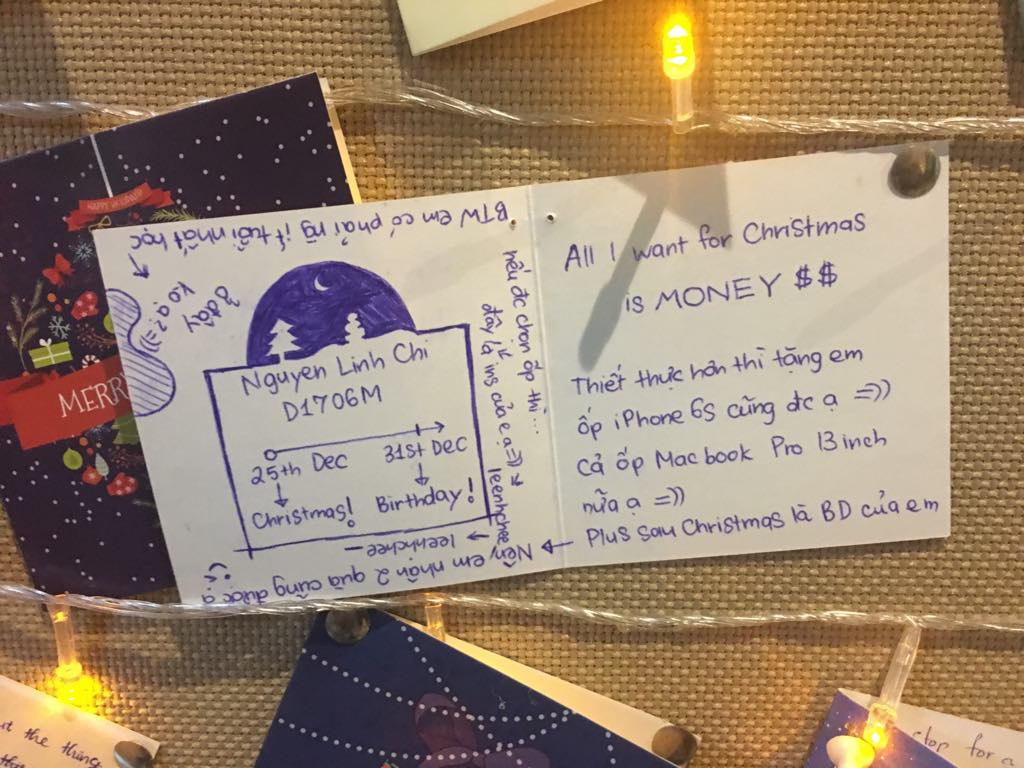 All I want for Christmas
is MONEY $$
Thiết thực hơn thì tặng em
ốp iPhone 6s cũng đc ạ =))
Cả ốp Macbook Pro 13 inch
nữa ạ =))
Plus sau Christmas là BD của em
Nên em nhận 2 quà cũng được ạ
Nguyen Linh Chi
D1706M
25th Dec
31st Dec
Christmas!
Birthday!
BTW em có phải ng ít tuổi nhất học
ở đây
ko ạ? =))
nếu đc chọn ốp thì...
đây là ins của e ạ =))
leenhchee
leehhchee
HAPPY HOLIDAY
MERR
t the thing
ctor for a